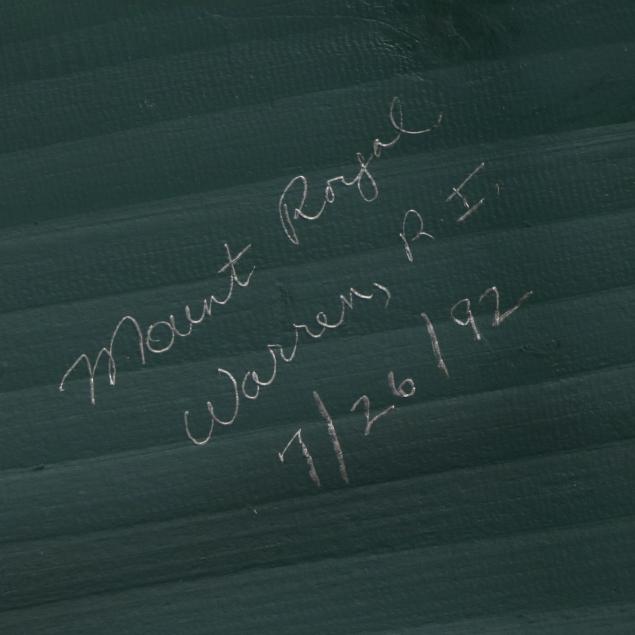 Mount Royal
Warren, R.I.
7/26/92